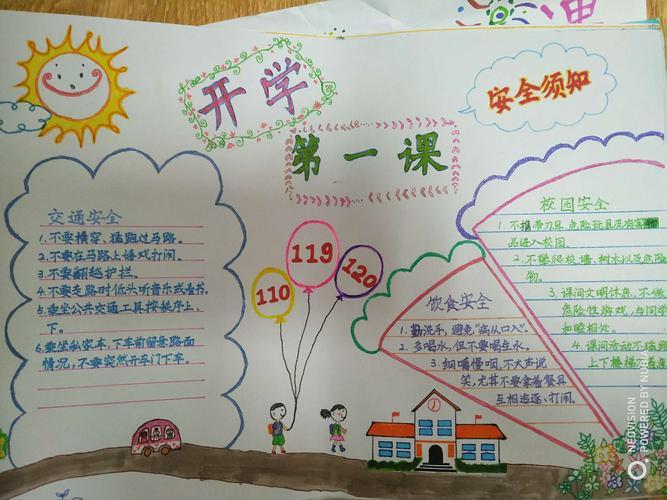 开学
第一课
安全须知
交通安全
1.不要横穿、猛跑过马路。
2.不要在马路上嬉戏打闹。
3.不要翻越护栏。
4.不要走路时低头听音乐或看书。
5.乘坐公共交通工具按秩序上、
下。
6.乘坐私家车,下车前留意路面
情况,不要突然开车门下车。
110
119
120
饮食安全
1.勤洗手,避免"病从口入"。
2.多喝水,但不要喝生水。
3.细嚼慢咽,不大声说
笑,尤其不要拿着餐具
互相追逐、打闹。
校园安全
1.不携带刀具 危险玩具及
品进入校园
2.不攀爬校墙、树木以及危险
物。
3.课间文明休息,不做
危险性游戏,与同学
和睦相处。
4.课间活动不猛跑
上下楼梯
NEOVISION
POWERED BY NUBIA